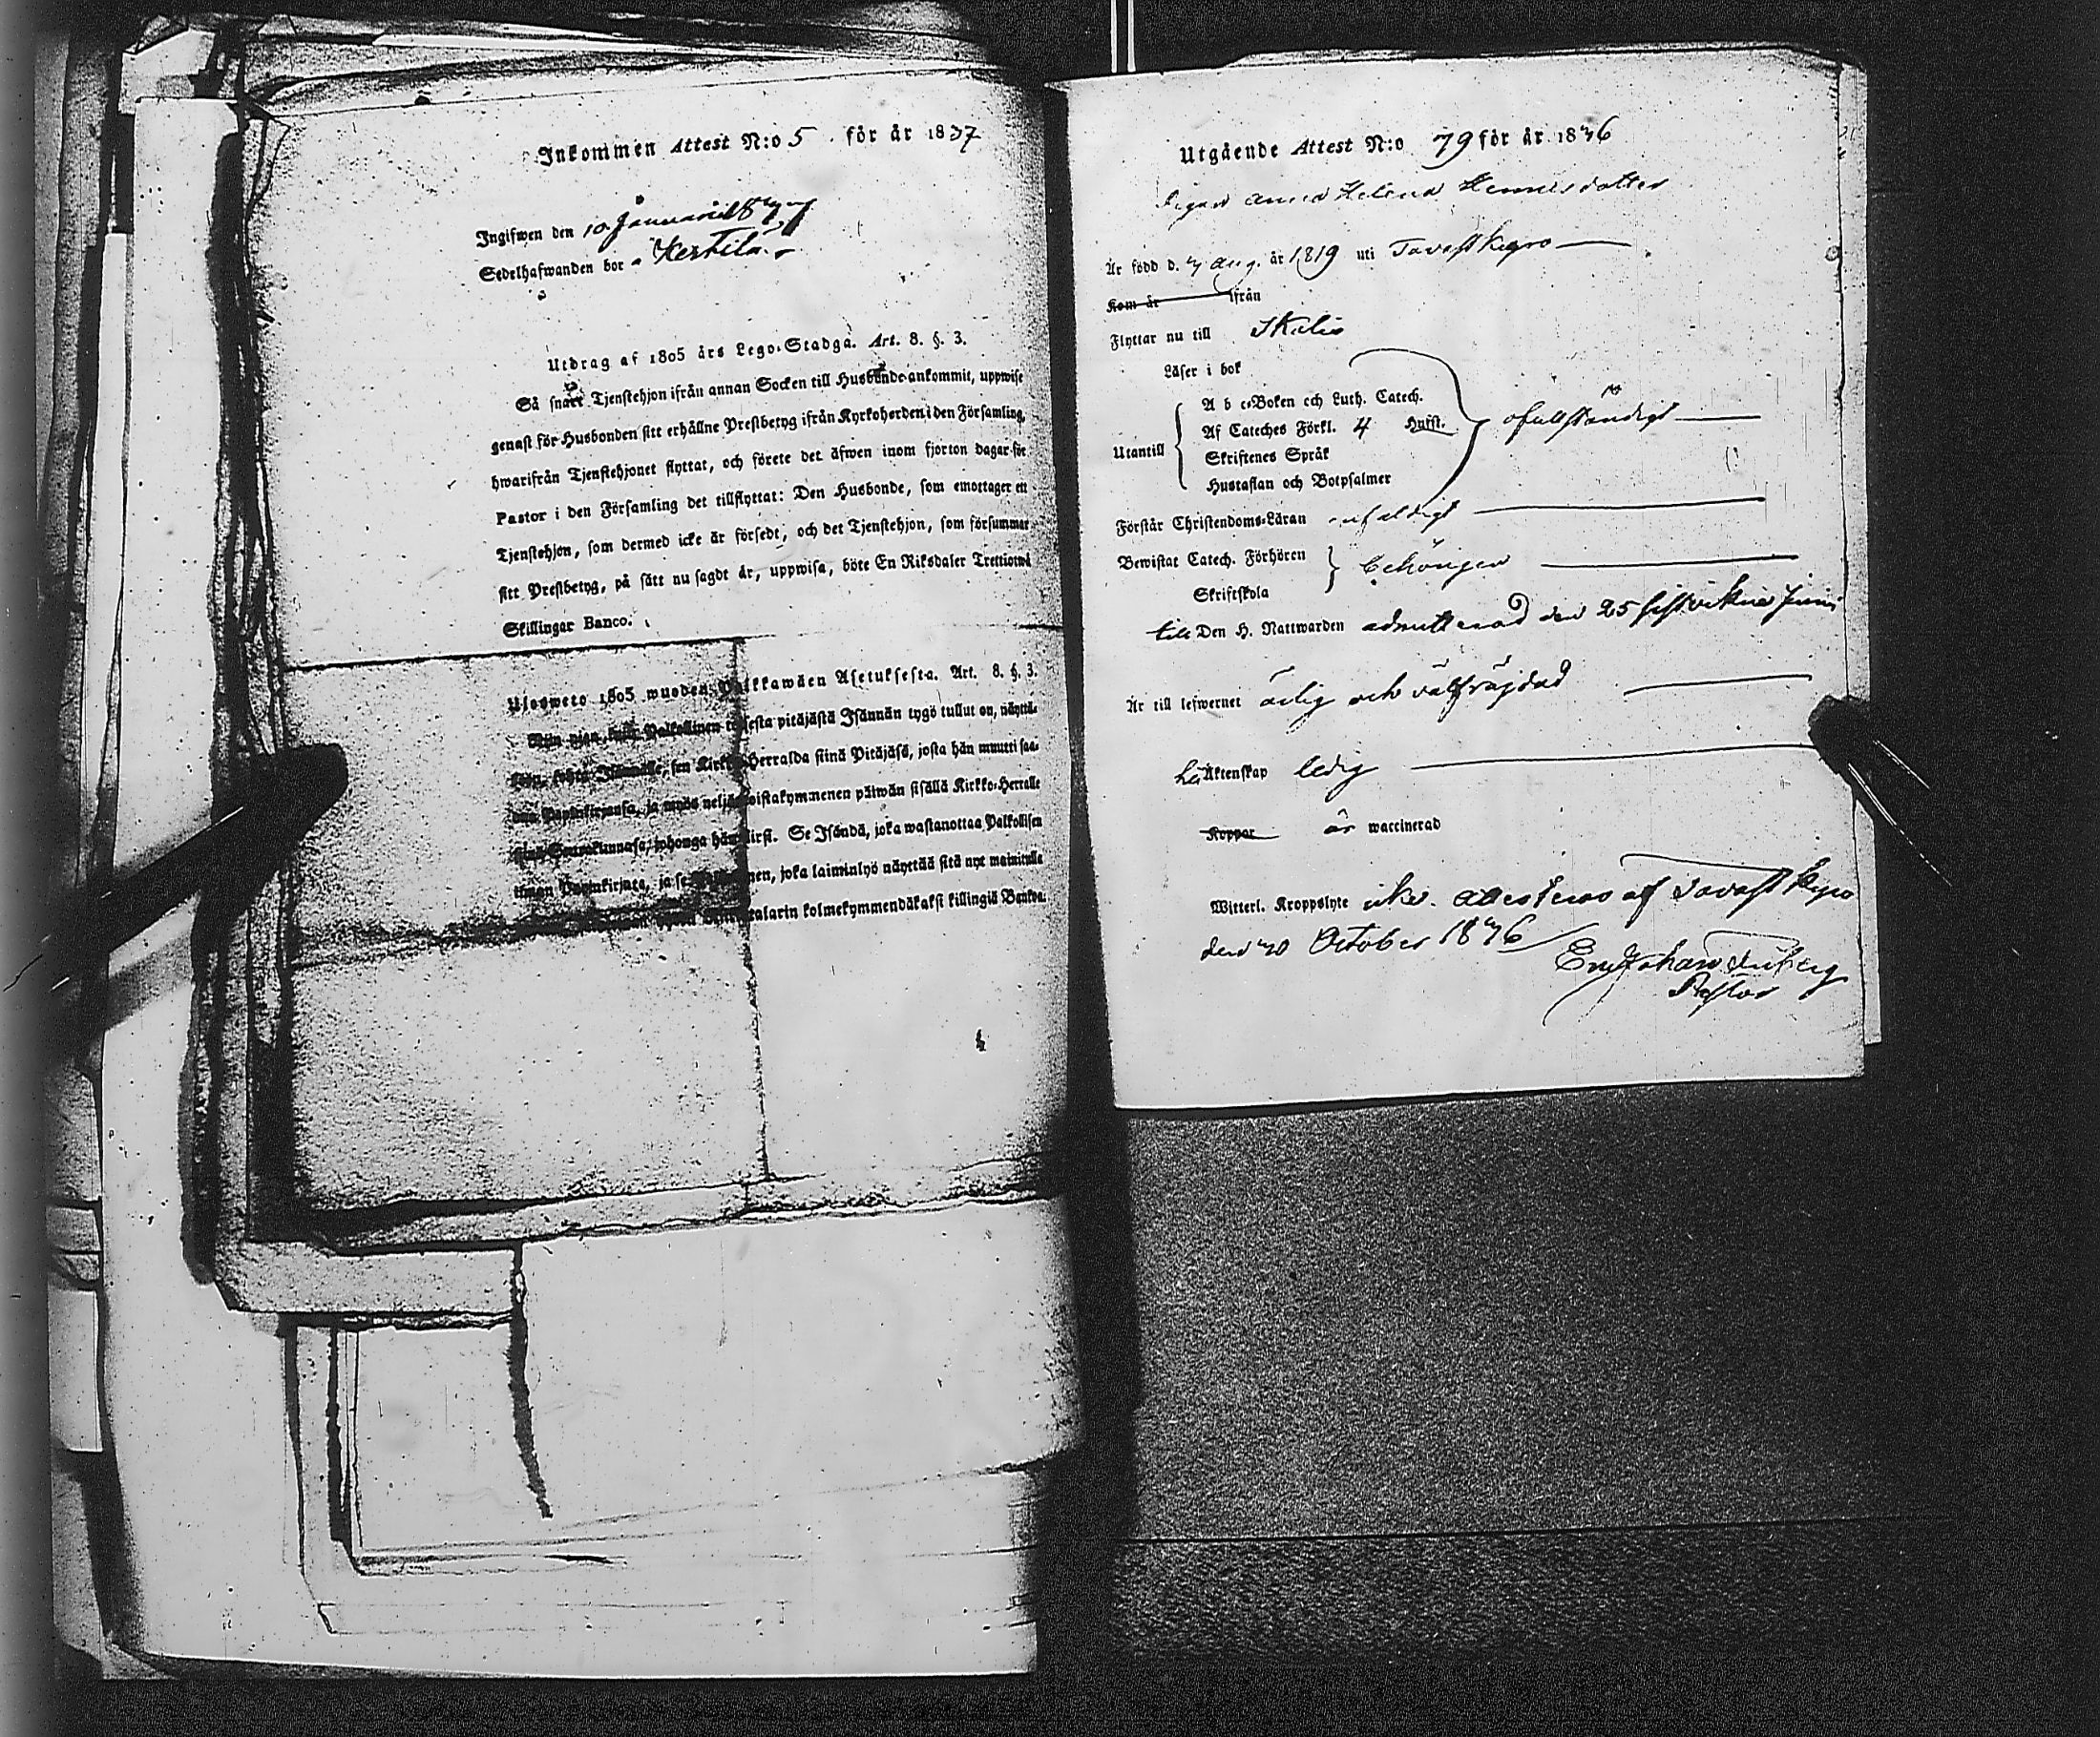 Inkommen Attest N:o 5 för år 1837
Ingifwen den 10 Januari
Sedelhafwanden bor Kerttila
Utdrag af 1805 års Lego-Stadga. Art. 8. §. 3.
Så snart Tjenstehjon ifrån annan Socken till Husbonde ankommit, uppwise
genast för Husbonden sitt erhållne Prestbetyg ifrån Kyrkoherden i den Församling,
hwarifrån Tjenstehjonet flyttat, och förete det äfwen inom fjorton dagar för
Pastor i den Församling det tillflyttat: Den Husbonde, som emottager ett
Tjenstehjon, som dermed icke är försedt, och det Tjenstehjon, som försummar
sitt Prestbetyg, på sätt nu sagdt är, uppwisa, böte En Riksdaler Trettiotwå
Skillingar Banco.
Ulosweto 1805 wuoden Palkkawäen Asetuksesta. Art. 8. §. 3.
Palkollinen toisesta pitäjästä Isännän tygö tullut on, näyttä-
Isännälle, sen Kirkko-Herralda siinä Pitäjäsä, josta hän muutti saa-
dun Papinkirjansa, ja myös neljäntoistakymmenen päiwän sisällä Kirkko-Herralle
siinä Seurakunnasa, johonga hän siirsi. Se Isändä, joka wastanottaa Palkollisen
ilman Papinkirjata, ja se Palkollinen, joka laiminlyö näyttää sitä nyt mainitulla
talarin kolmekymmendäkaksi killingiä Bankoa.
Utgående Attest N:o 79 för år 1836
Pigan Anna Helena Hennisdotter
Är född d. 7 Aug. år 1819 uti Tavastkyro
Kom år ifrån
Flyttar nu till Ikalis
Läser i bok
Utantill
A b c-Boken och Luth. Catech.
Af Cateches Förkl. 4 Hufst. ofullständigt
Skriftenes Språk
Hustaflan och Botpsalmer
Förstår Christendoms-Läran enfaldigt
Bewistat Catech. Förhören
Skriftskola
behörigen
till Den H. Nattwarden admitterad den 25 sistvikne Juni
Är till lefwernet ärlig och välfräjdad
Äktenskap ledig
Koppor är waccinerad
Witterl. Kroppslyte icke. Attesteras af Tavastkyro
den 20 October 1836
Johan
Pastor